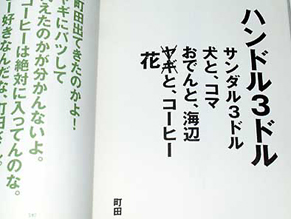 ハンドル3ドル
サンダル3ドル
犬と、コマ
おでんと、海辺
ヤギと、コーヒー
花
町田
町田出てきたのかよ!
ヤギにパツして
えたのか分かんないよ。
コーヒーは絶対に入ってんのな。
ー好きなんだな、町田さん。